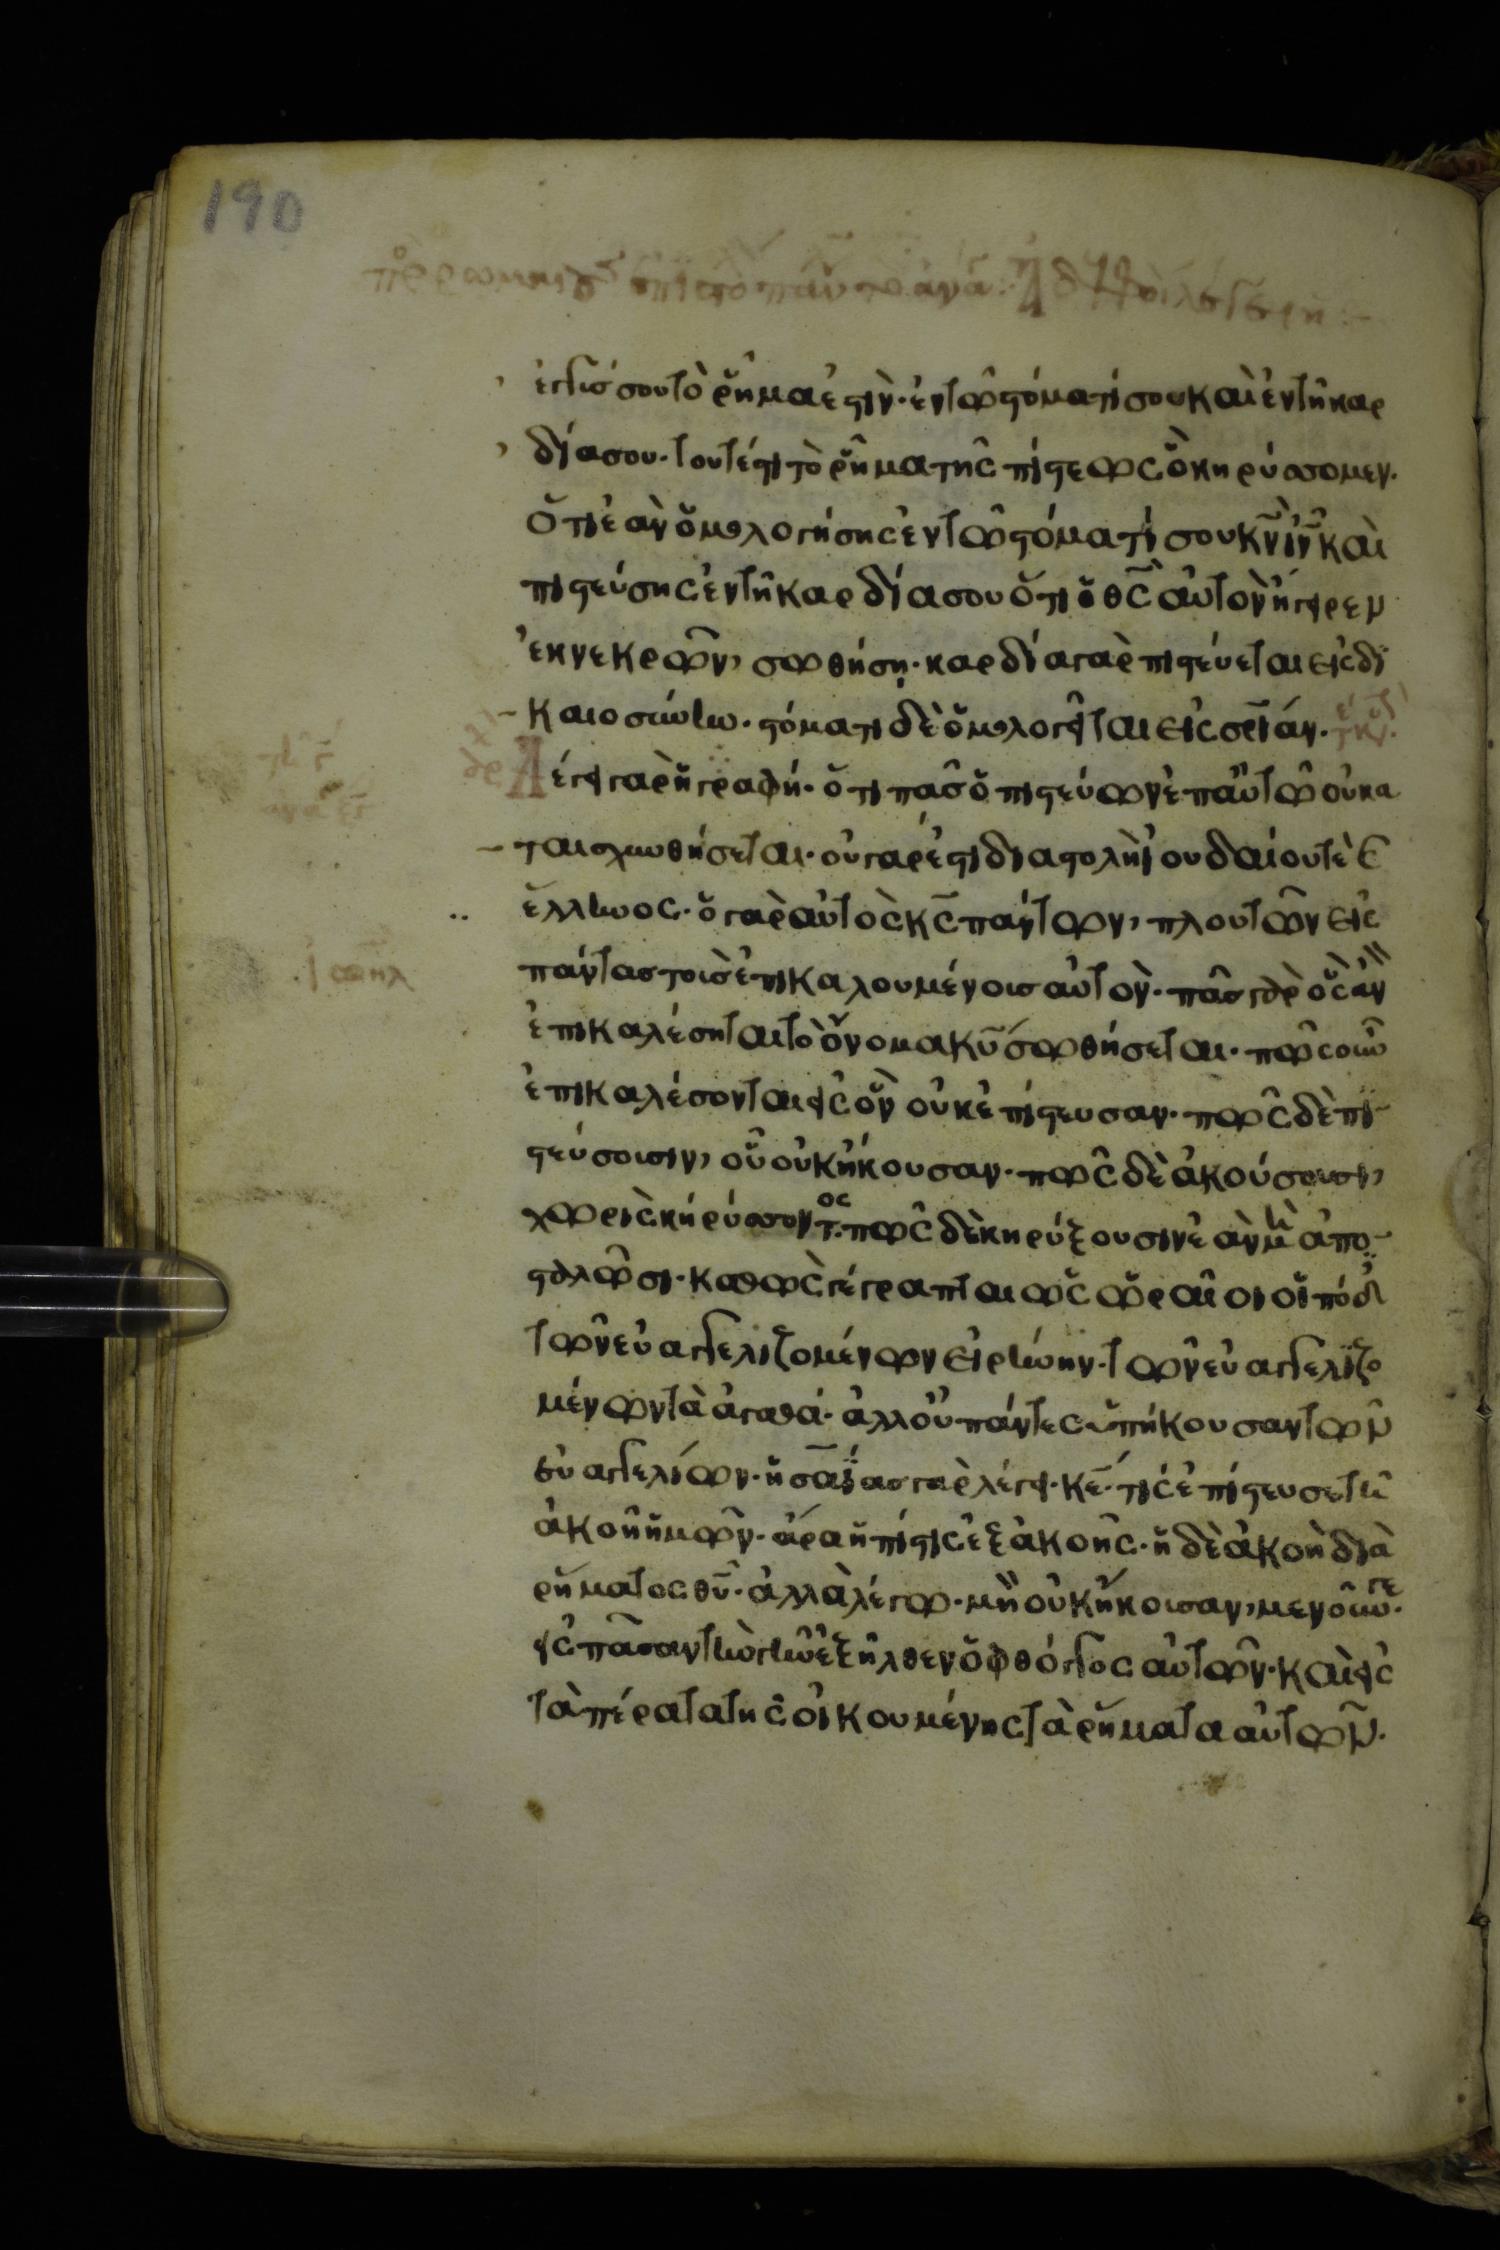 190
ἐγγύς σου τὸ ῥῆμα ἐστὶν· ἐν τῶ στόματί σου καὶ ἐν τῆ καρ
δία σου· τουτέστι τὸ ῥῆμα τῆς πίστεως ὃ κηρύσσομεν·
ὅτι ἐὰν ὁμολογήσης ἐν τῶ στόματί σου κν̅ ἰν̅ καὶ
πιστεύσης ἐν τῆ καρδία σου ὅτι ὁ θς̅ αὐτὸν ἤγειρεν
ἐκ νεκρῶν, σωθήση· καρδία γὰρ πιστεύεται εἰς δι
καιοσύνην· στόματι δὲ ὁμολογεῖται εἰς σρ̅ίαν·
Λέγει γὰρ ἡ γραφή· ὅτι πᾶς ὁ πιστεύων ἐπ αὐτῶ οὐ κα
ταισχυνθήσεται· οὐ γάρ ἐστι διαστολὴ ἰουδαίου τὲ
ἕλληνος· ὁ γὰρ αὐτὸς κς̅ πάντων, πλουτῶν εἰς
πάντας τοὺς ἐπικαλουμένους αὐτὸν· πᾶς γὰρ ὃς ἂν
ἐπικαλέσηται τὸ ὄνομα κυ̅ σωθήσεται· πῶς οὖν
ἐπικαλέσονται εἰς ὃν οὐκ ἐπίστευσαν· πῶς δὲ πι
στεύσουσιν, οὗ οὐκ ἤκουσαν· πῶς δὲ ἀκούσουσι,
χωρὶς κηρύσσοντος· πῶς δὲ κηρύξουσιν ἐὰν μὴ ἀπο
σταλῶσι· καθὼς γέγραπται ὡς ὡραῖοι οἱ πόδες
τῶν εὐαγγελιζομένων εἰρήνην· τῶν εὐαγγελιζο
μένων τὰ ἀγαθά· ἀλλ οὐ πάντες ὑπήκουσαν τῶν
εὐαγγελίων· ἡσαΐας γὰρ λέγει· κε̅· τίς ἐπίστευσε τῆ
ἀκοῆ ἡμῶν· ἄρα ἡ πίστις ἐξ ἀκοῆς· ἡ δὲ ἀκοὴ διὰ
ῥήματος θυ̅· ἀλλὰ λέγω· μὴ οὐκ ἤκουσαν, μενοῦν γε·
εἰς πᾶσαν τὴν γῆν ἐξῆλθεν ὁ φθόγγος αὐτῶν· καὶ εἰς
τὰ πέρατα τῆς οἰκουμένης τὰ ῥήματα αὐτῶν·
ἰωηλ